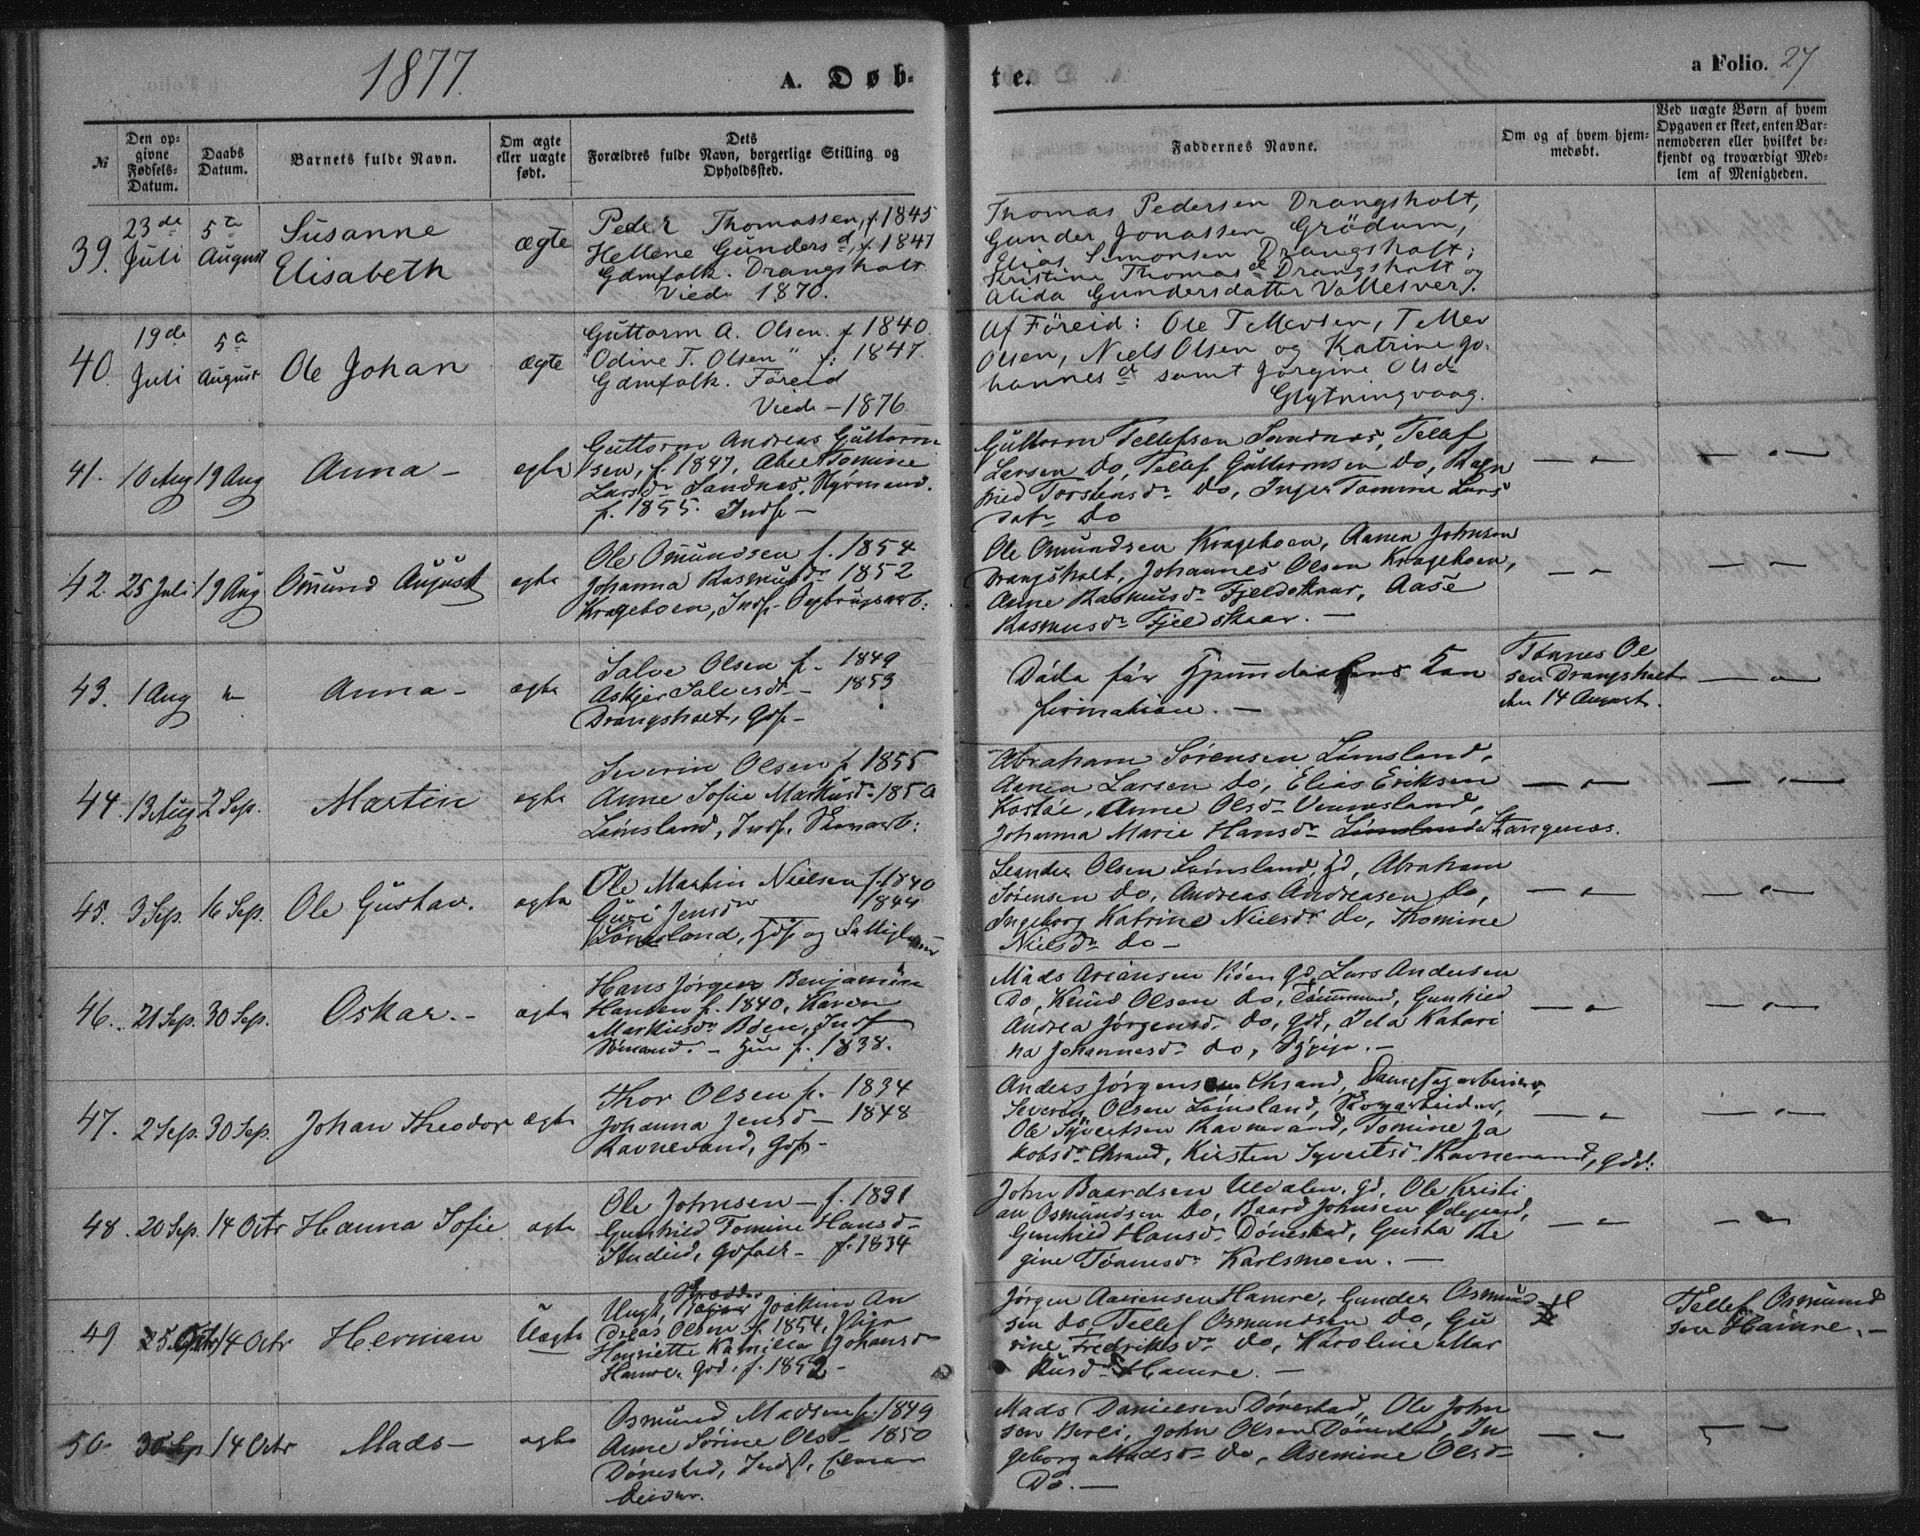 1877.
A. Døb-
te.
a Folio. 27
№
Den op-
givne
Fødsels-
Datum.
Daabs
Datum.
Barnets fulde Navn.
Om ægte
eller uægte
født.
Dets
Forældres fulde Navn, borgerlige Stilling og
Opholdssted.
Faddernes Navne.
Om og af hvem hjem-
medøbt.
Ved uægte Børn af hvem
Opgaven er skeet, enten Bar-
nemoderen eller hvilket be-
kjendt og troværdigt Med-
lem af Menigheden.
39.
23de
Juli
5te
August
Susanne
Elisabeth
ægte
Peder Thomassen, f. 1845
Hellene Gundersd, f. 1847
Gdmfolk. Drangsholt
Viede 1870.
Thomas Pedersen Drangsholt,
Gunder Jonassen Grödum,
Elias Simonsen Drangsholt;
Kristine Thomasd Drangsholt og
Alida Gundersdatter Vallesver.
40.
19de
Juli
5te
August
Ole Johan
ægte
Guttorm A. Olsen. f 1840.
"Odine T. Olsen" f: 1847.
Gdmfolk. Föreid
Viede – 1876
Af Föreid: Ole Tellevsen, Tellev
Olsen, Niels Olsen og Katrine Jo-
hannesd samt Jörgine Olsd
Glytningvaag.
41.
10 Aug
19 Aug
Anna –
egte
Guttorm Andreas Guttorm
sen, f. 1847, Abel Tomine
Larsdr Sandnes, Styrmand.
f. 1855. Indf –
Guttorm Tellefsen Sandnes, Tellef
Larsen Do, Tellef Guttormsen Do, Ragn
hild Torstensdr Do, Inger Tomine Lars
datr Do
— " —
— " —
42.
25 Juli
19 Aug
Omund August
egte
Ole Omundsen f. 1854
Johanna Rasmusdr 1852
Krageboen, Indf. Sagbrugsarb:
Ole Omundsen Krageboen, Aanen Johnsen
Drangsholt, Johannes Olsen Krageboen,
Anne Rasmusdr Fjeldskaar, Aase
Rasmusdr Fjeldskaar. –
— " —
— " —
43.
1 Aug
"
Anna –
egte
Salve Olsen f. – 1849
Askjer Salvesdr – 1853
Drangsholt, Gdf –
Döde før
firmation. –
Tønnes Ol
sen Drangsholt
den 14 August.
— " —
44.
13 Aug
2 Sep.
Martin
egte
Severin Olsen f. 1855
Anne Sofie Markusdr 1850
Lømsland, Indf. Skovarb:
Abraham Sørensen Lømsland,
Aanen Larsen Do, Elias Eriksen
Kostöe, Anne Olsdr Vennesland,
Johanna Marie Hansdr Lømsland Stangenes.
— " —
— " —
45.
3 Sep.
16 Sep.
Ole Gustav.
egte
Ole Martin Nielsen f. 1840
Guri Jensdr 1844
Lømsland, Hdf og Fattiglem
Leander Olsen Lømsland, Gd, Abraham
Sørensen Do, Andreas Andreasen Do,
Ingeborg Katrine Nielsdr Do, Thomine
Nielsdr Do –
— " —
— " —
46.
21 Sep.
30 Sep.
Oskar. –
egte
Hans Jørgen Benjamin
Hansen f. 1840, Karen
Markusdr Bøen, Indf
Sømand. – Hun f. 1838.
Mads Ariansen Bøen Gd, Lars Andersen
Do, Knud Olsen Do, Tømmermd, Gunhild
Andrea Jørgensdr Do, Gdd, Ida Katari
na Johannesdr Do, Pige. –
— " —
— " —
47.
2 Sep.
30 Sep.
Johan Theodor
ægte
Thor Olsen f. – 1834
Johanna Jensd – 1848
Ravnevand, Gdf –
Anders Jørgensen Chrsand, Dampsagarbeider,
Severin Olsen Lømsland, Skogarbeider,
Ole Syvertsen Ravnevand, Tomine Ja
kobsdr Chrsand, Kirsten Syvertsdr Ravnevand, Gdd.
— " —
— " —
48.
20 Sep.
14 Octr
Hanna Sofie
egte
Ole Johnsen – f. 1831
Gunhild Tomine Hansd –
Studlid, Gdfolk – f. 1834
John Baardsen Uldalen, Gd, Ole Kristi
an Osmundsen Do, Baard Johnsen Ødegaard,
Gunhild Hansdr Dønestad, Gusta Re
gine Tønnesdr Karlsmoen. –
— " —
— " —
49
14 Octr
Herman
Uægte
Ungk. Joakim An
dreas Olsen f. 1854, Pige
Henriette Kamilla Johansd
Hamre, Gdd. f. 1852 –
Jørgen Aanensen Hamre, Gunder Osmund
sen Do, Tellef Osmundsen Do, Gu
rine Fredriksdr Do, Karoline Mar
kusdr Hamre. –
Tellef Osmund
sen Hamre. –
50
30 Sep
14 Octr
Mads –
egte
Osmund Madsen f. 1849
Anne Sørine Olsd – 1850
Dønestad, Indf,
beider.
Mads Danielsen Dønestad, Ole John
sen Berli, John Olsen Dønestad, In
geborg Madsdr Do, Asemine Olsd –
Do. –
— " —